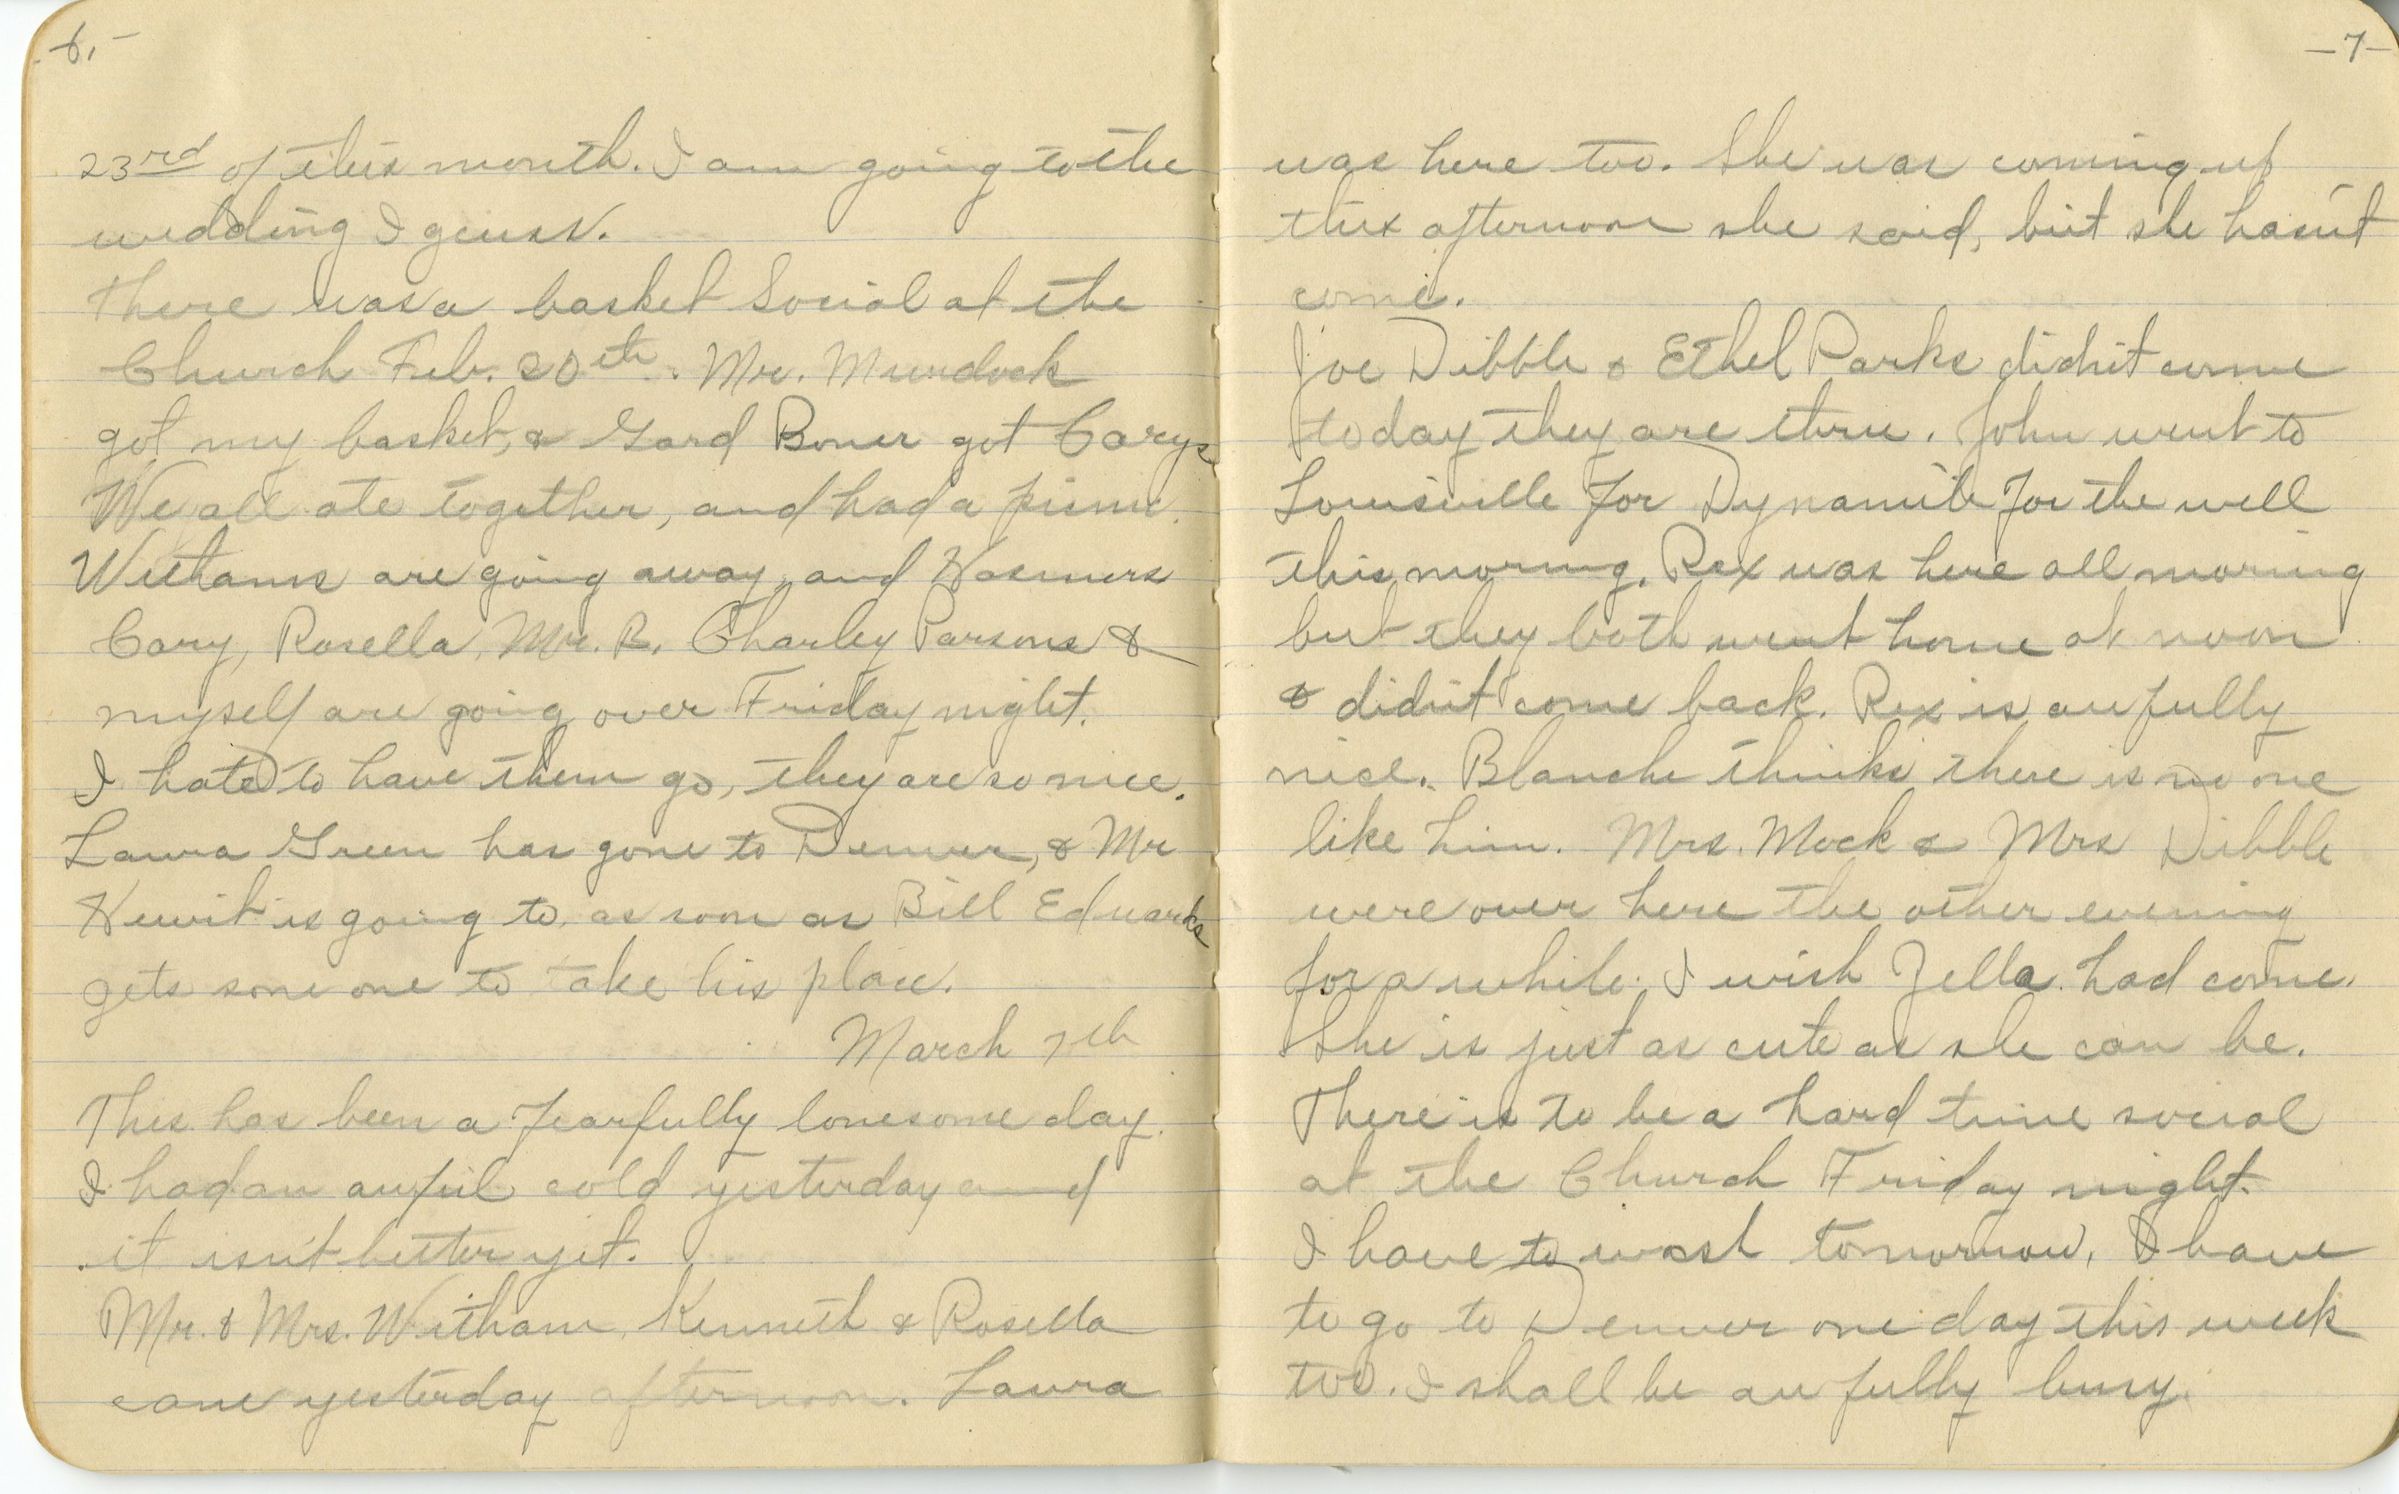 -6.-
23rd of this month. I am going to the
wedding I guess.
There was a basket Social at the
Church Feb. 20th. Mr. Murdock
got my basket, & Gard Boner got Carys
We all ate together, and had a picnic.
Withams are going away, and Wasmers
Cary, Rosella, Mr. B. Charley Parsons &
myself are going over Friday night.
I hate to have them go, they are so nice.
Laura Green has gone to Denver, & Mr
Hewit is going to, as soon as Bill Edwards
gets some one to take his place.
March 7th
This has been a fearfully lonesome day.
I had an awful cold yesterday and
it isn't better yet.
Mr. & Mrs. Witham, Kenneth & Rosella
came yesterday afternoon. Laura
-7-
was here too. She was coming up
this afternoon she said, but she hasn't
come.
Joe Dibble & Ethel Parks didn't come
today they are thru. John went to
Louisville for Dynamite for the well
this morning. Rex was here all morning
but they both went home at noon
& didn't come back. Rex is awfully
nice. Blanche thinks there is no one
like him. Mrs. Mock & Mrs Dibble
were over here the other evening
for a while. I wish Zella had come.
She is just as cute as she can be.
There is to be a hard time social
at the Church Friday night.
I have to wash tomorrow, I have
to go to Denver one day this week
too. I shall be awfully busy.